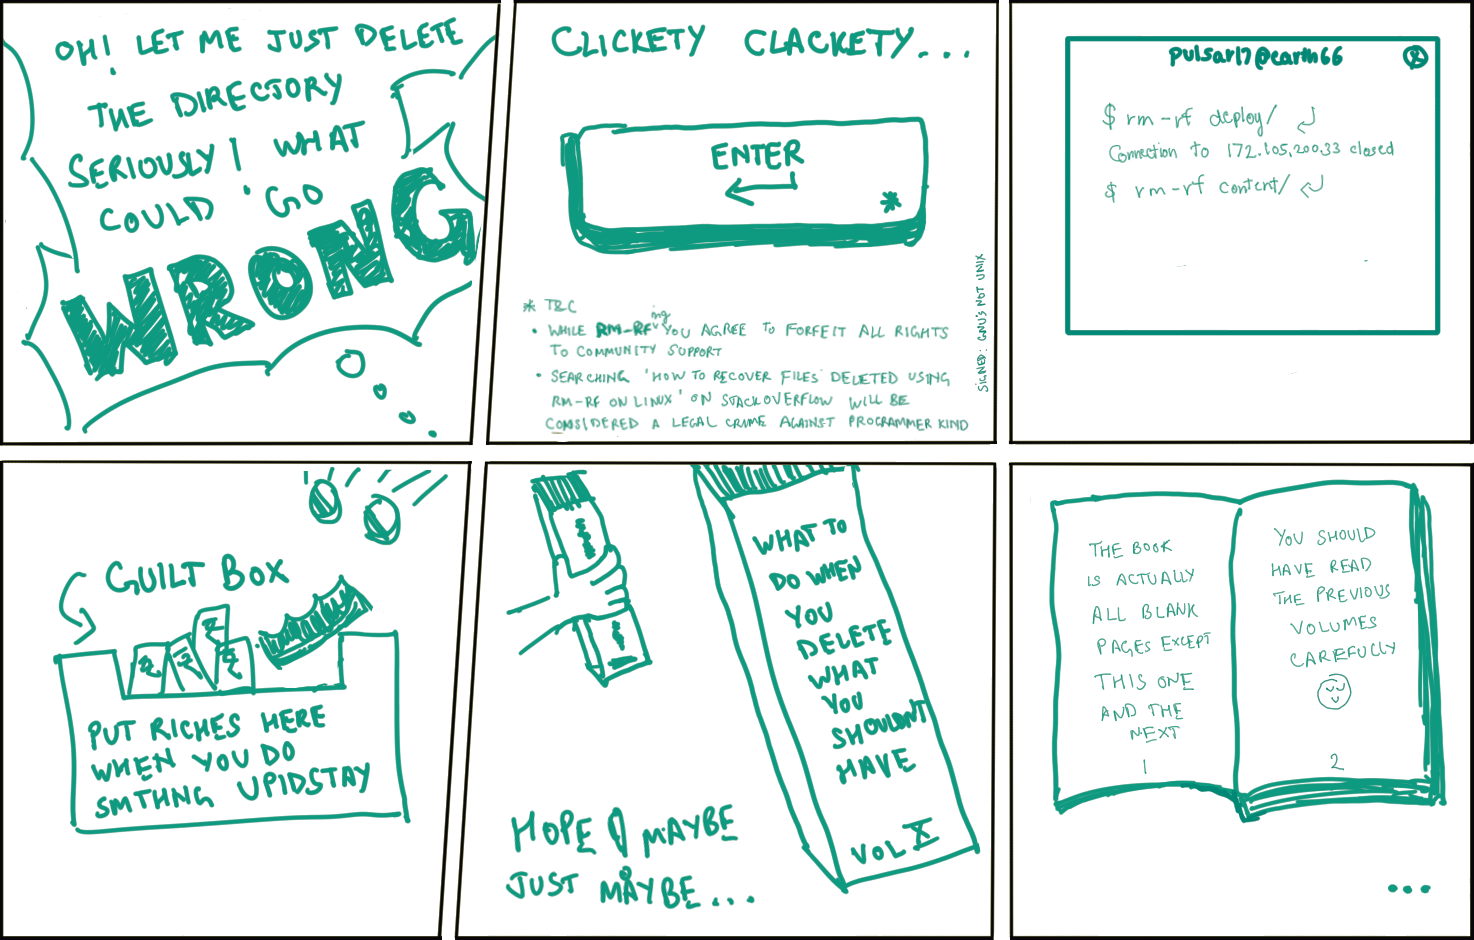 OH! LET ME JUST DELETE
THE DIRECTORY
SERIOUSLY! WHAT
COULD GO
WRONG
CLICKETY CLACKETY...
ENTER
*
* T&C
• WHILE RM-RFing YOU AGREE TO FORFEIT ALL RIGHTS
TO COMMUNITY SUPPORT
• SEARCHING 'HOW TO RECOVER FILES DELETED USING
RM-RF ON LINUX' ON STACKOVERFLOW WILL BE
CONSIDERED A LEGAL CRIME AGAINST PROGRAMMER KIND
SIGNED: GNU'S NOT UNIX
pulsar17@earth66
$ rm -rf deploy/
Connection to 172.105.200.33 closed
$ rm -rf content/
GUILT BOX
₹ ₹ ₹ ₹
PUT RICHES HERE
WHEN YOU DO
SMTHNG UPIDSTAY
WHAT TO
DO WHEN
YOU
DELETE
WHAT
YOU
SHOULDN'T
HAVE
VOL X
HOPE MAYBE
JUST MAYBE...
THE BOOK
IS ACTUALLY
ALL BLANK
PAGES EXCEPT
THIS ONE
AND THE
NEXT
1
YOU SHOULD
HAVE READ
THE PREVIOUS
VOLUMES
CAREFULLY
2
...